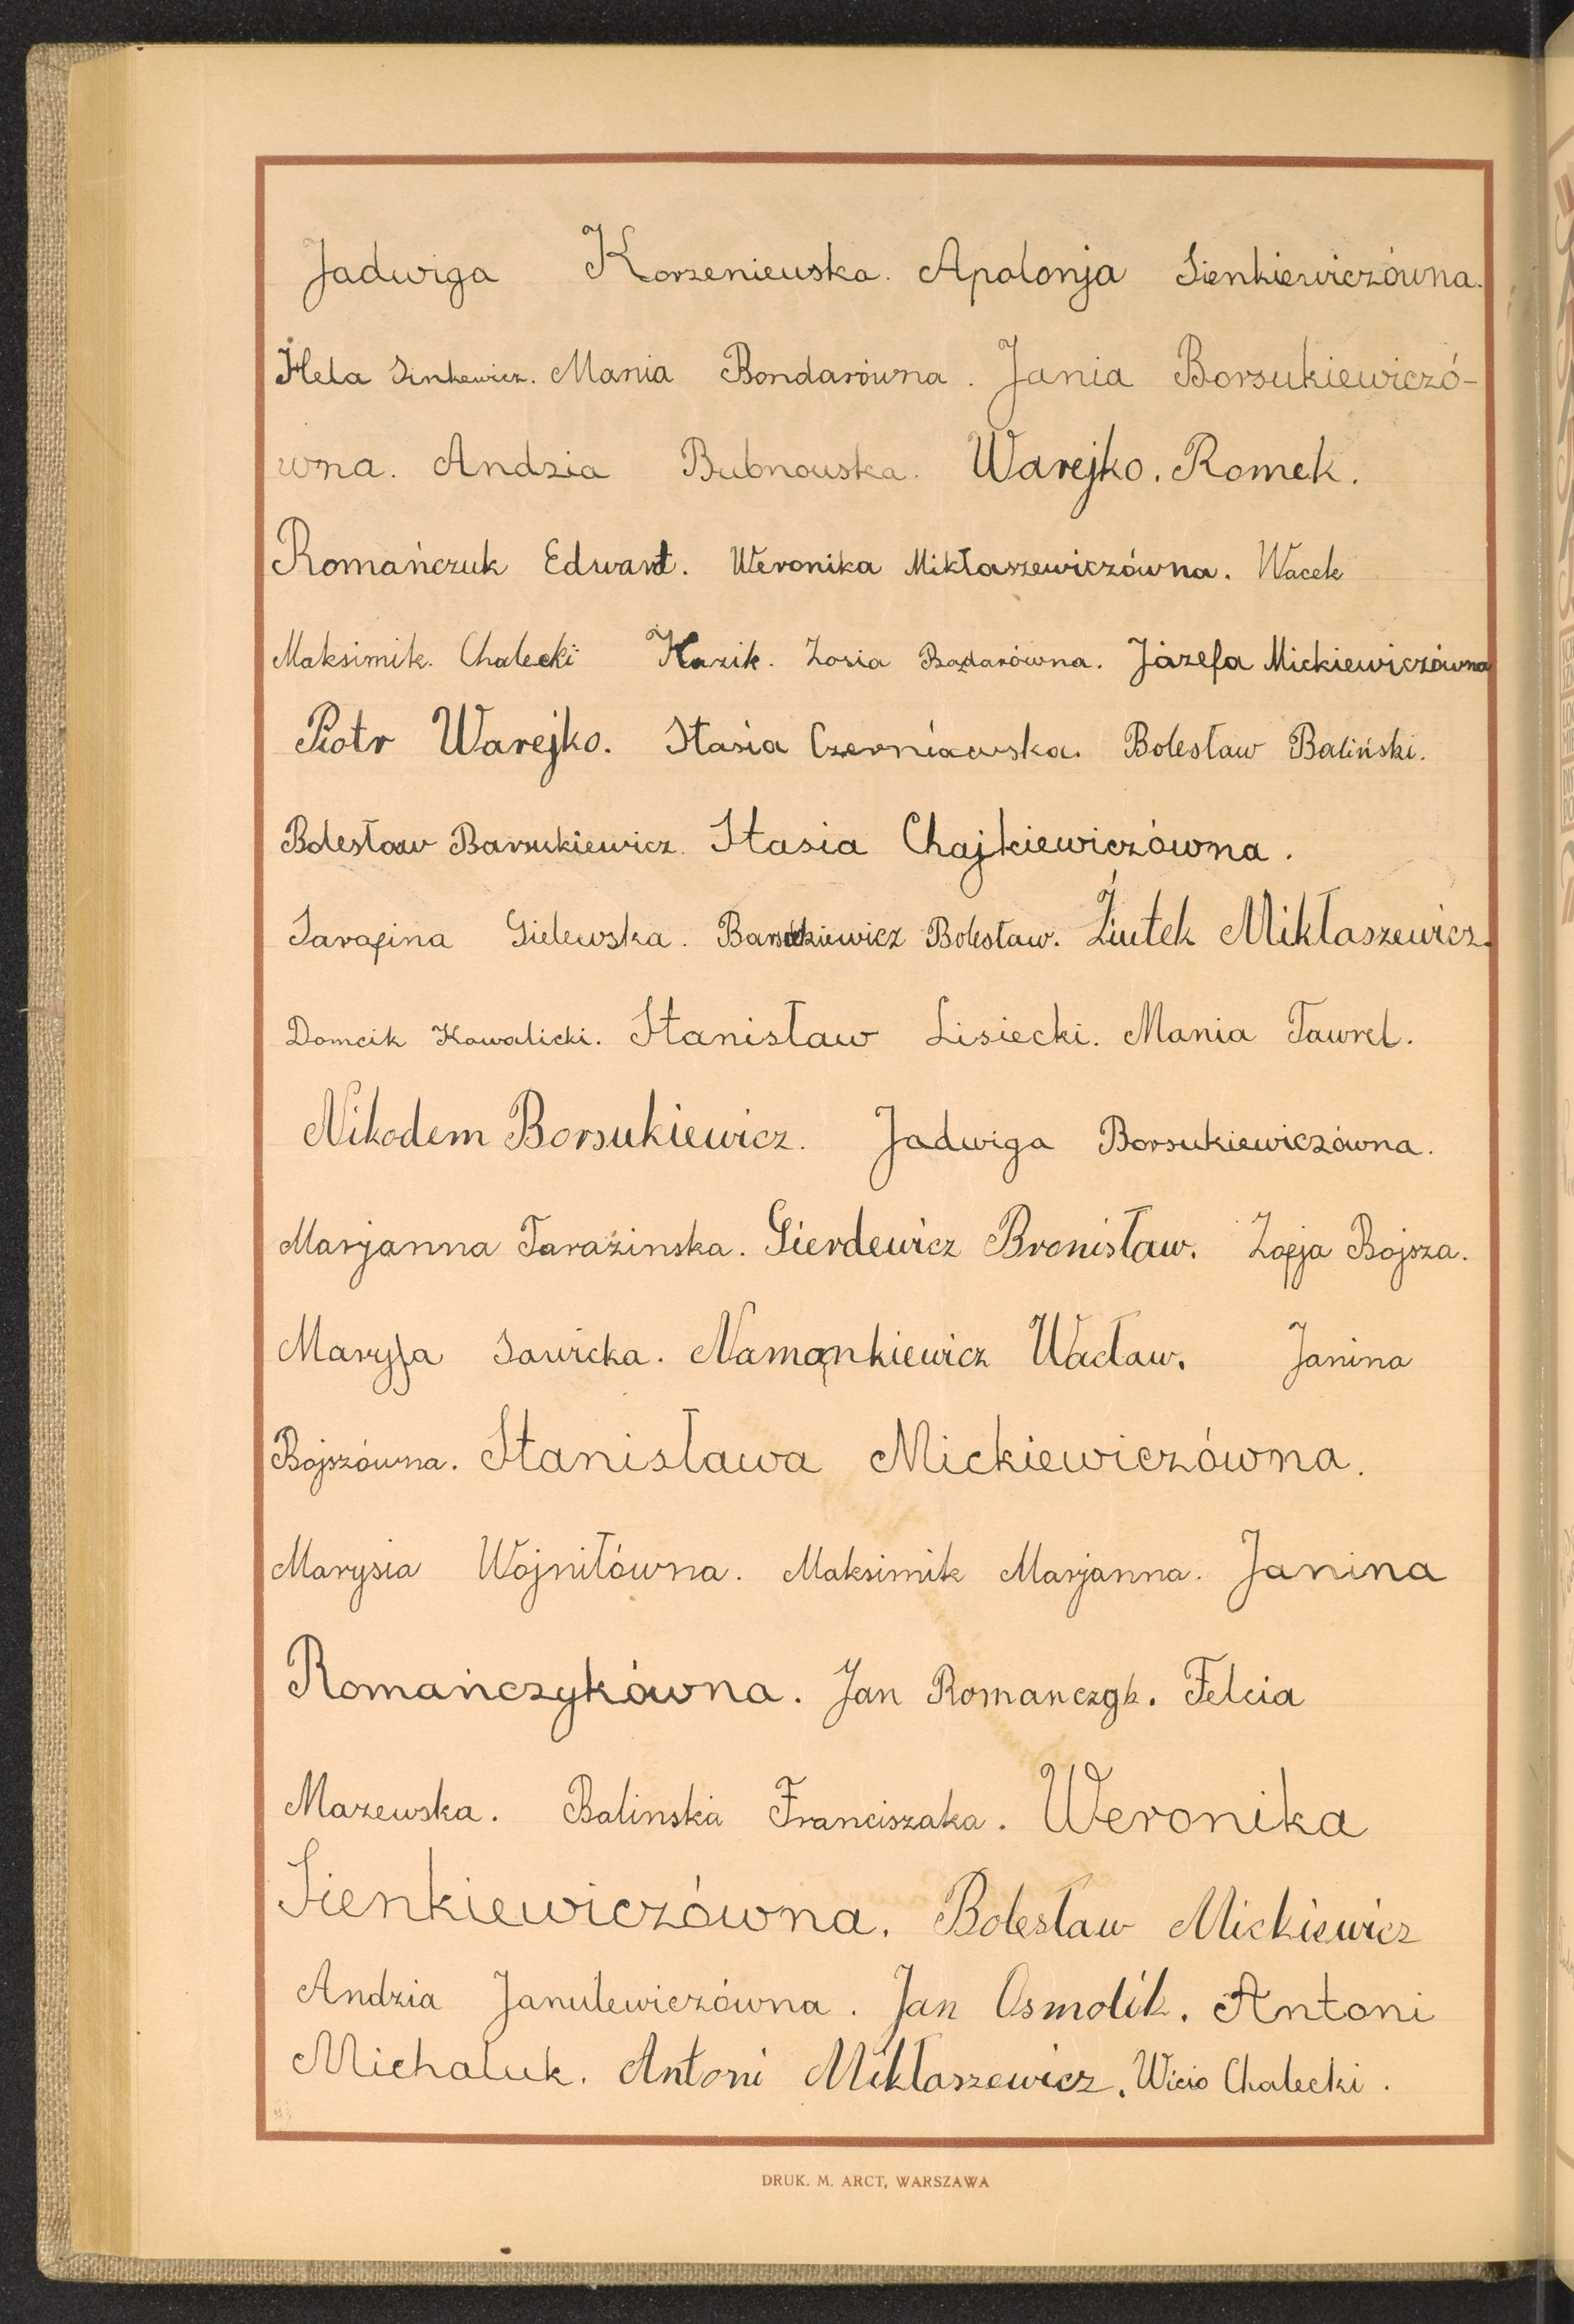 Jadwiga Korzeniewska. Apolonja Sienkiewiczówna.
Hela Sinkewicz. Mania Bondarówna. Jania Borsukiewiczó-
wna. Andzia Bubnowska. Warejko. Romek.
Romańczuk Edward. Weronika Mikłaszewiczówna. Wacek
Maksimik. Chalecki Kazik. Zosia Bądarówna. Józefa Mickiewiczówna
Piotr Warejko. Stasia Czerniawska. Bolesław Baliński.
Bolesław Barsukiewicz. Stasia Chajkiewiczówna.
Sarafina Gielewska. Barsukiewicz Bolesław. Źiutek Mikłaszewicz.
Domcik Kowalicki. Stanisław Lisiecki. Mania Tawrel.
Nikodem Borsukiewicz. Jadwiga Borsukiewiczówna.
Marjanna Tarazinska. Gierdewicz Bronisław. Zofja Bojsza.
Maryja Sawicka. Namąnkiewicz Wacław. Janina
Bojszówna. Stanisława Mickiewiczówna.
Marysia Wojniłówna. Maksimik Marjanna. Janina
Romańczykówna. Jan Romanczyk. Felcia
Mazewska. Balinska Franciszaka. Weronika
Sienkiewiczówna. Bolesław Mickiewicz
Andzia Janulewiczówna. Jan Osmolik. Antoni
Michaluk. Antoni Mikłaszewicz. Wicio Chalecki.
DRUK. M. ARCT, WARSZAWA